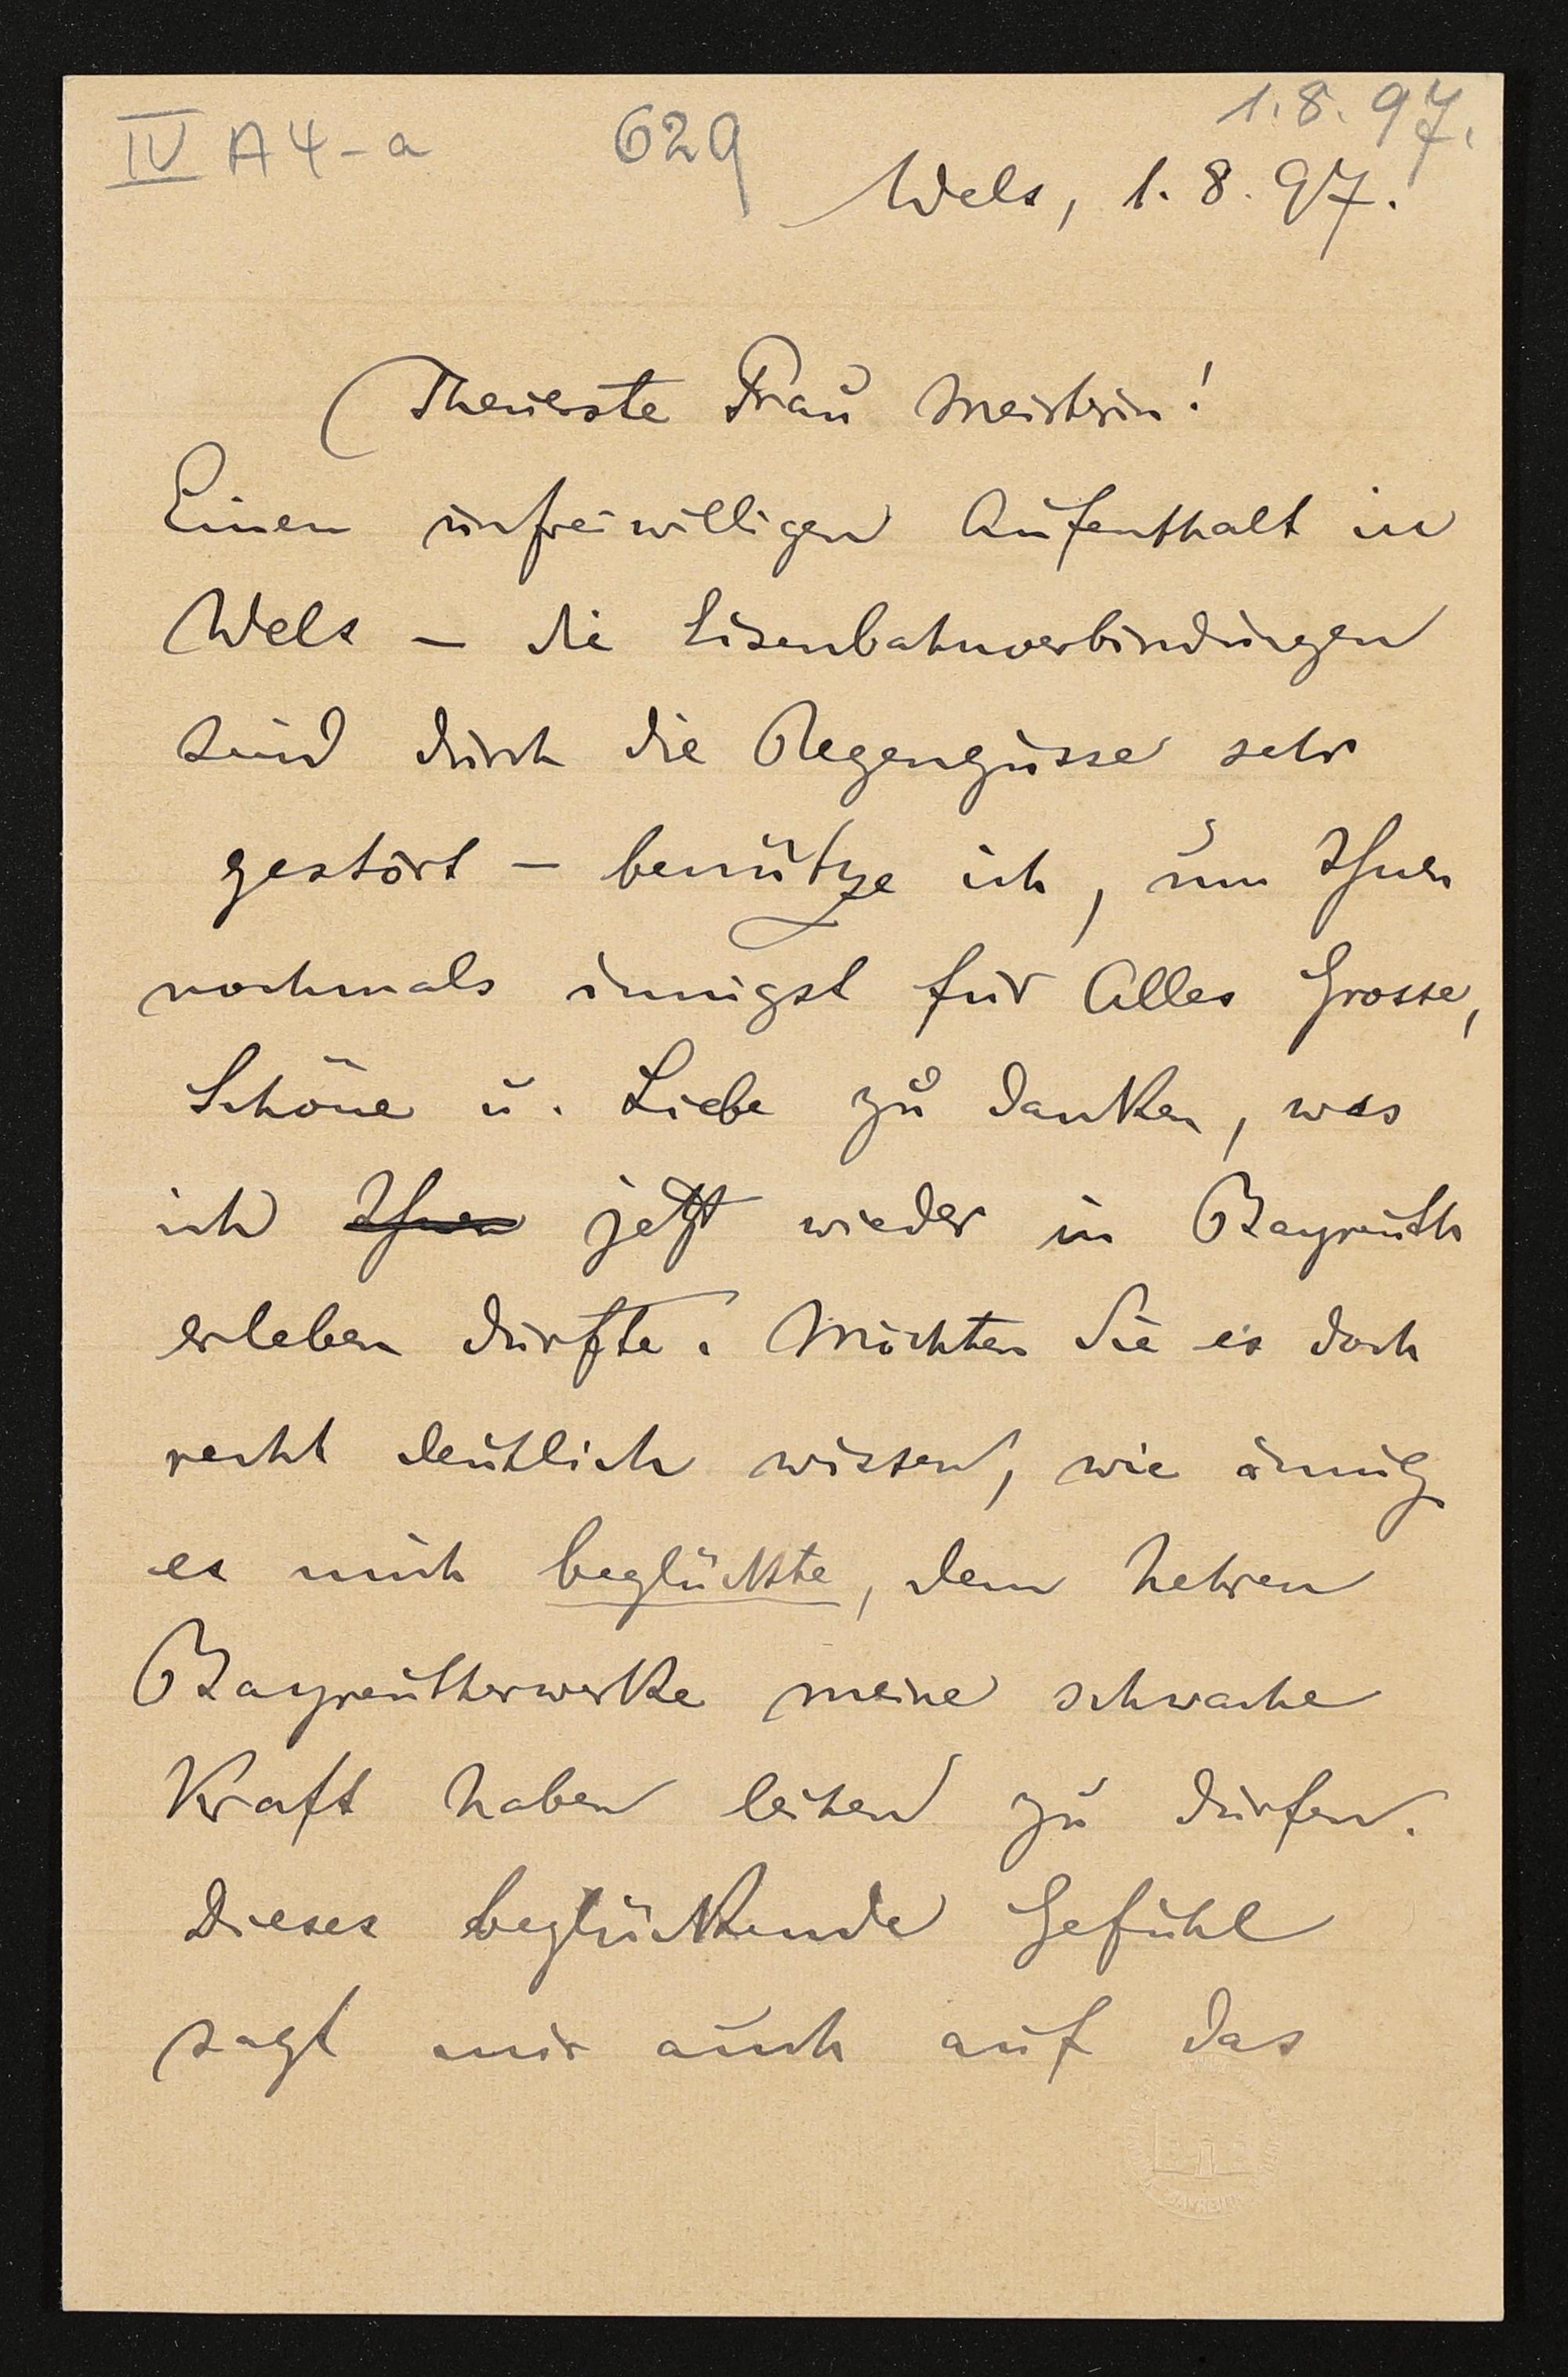 IV A 4-a 629 1.8.97.
Wels, 1.8.97.
Theuerste Frau Meisterin!
Einen unfreiwilligen Aufenthalt in
Wels – die Eisenbahnverbindungen
sind durch die Regengüsse sehr
gestört – benütze ich, um Ihnen
nochmals innigst für Alles Grosse,
Schöne u. Liebe zu danken, was
ich Ihnen jetzt wieder in Bayreuth
erleben durfte. Möchten Sie es doch
recht deutlich wissen, wie innig
es mich beglückte, dem hehren
Bayreutherwerke meine schwache
Kraft haben leihen zu dürfen.
Dieses beglückende Gefühl
sagt mir auch auf das